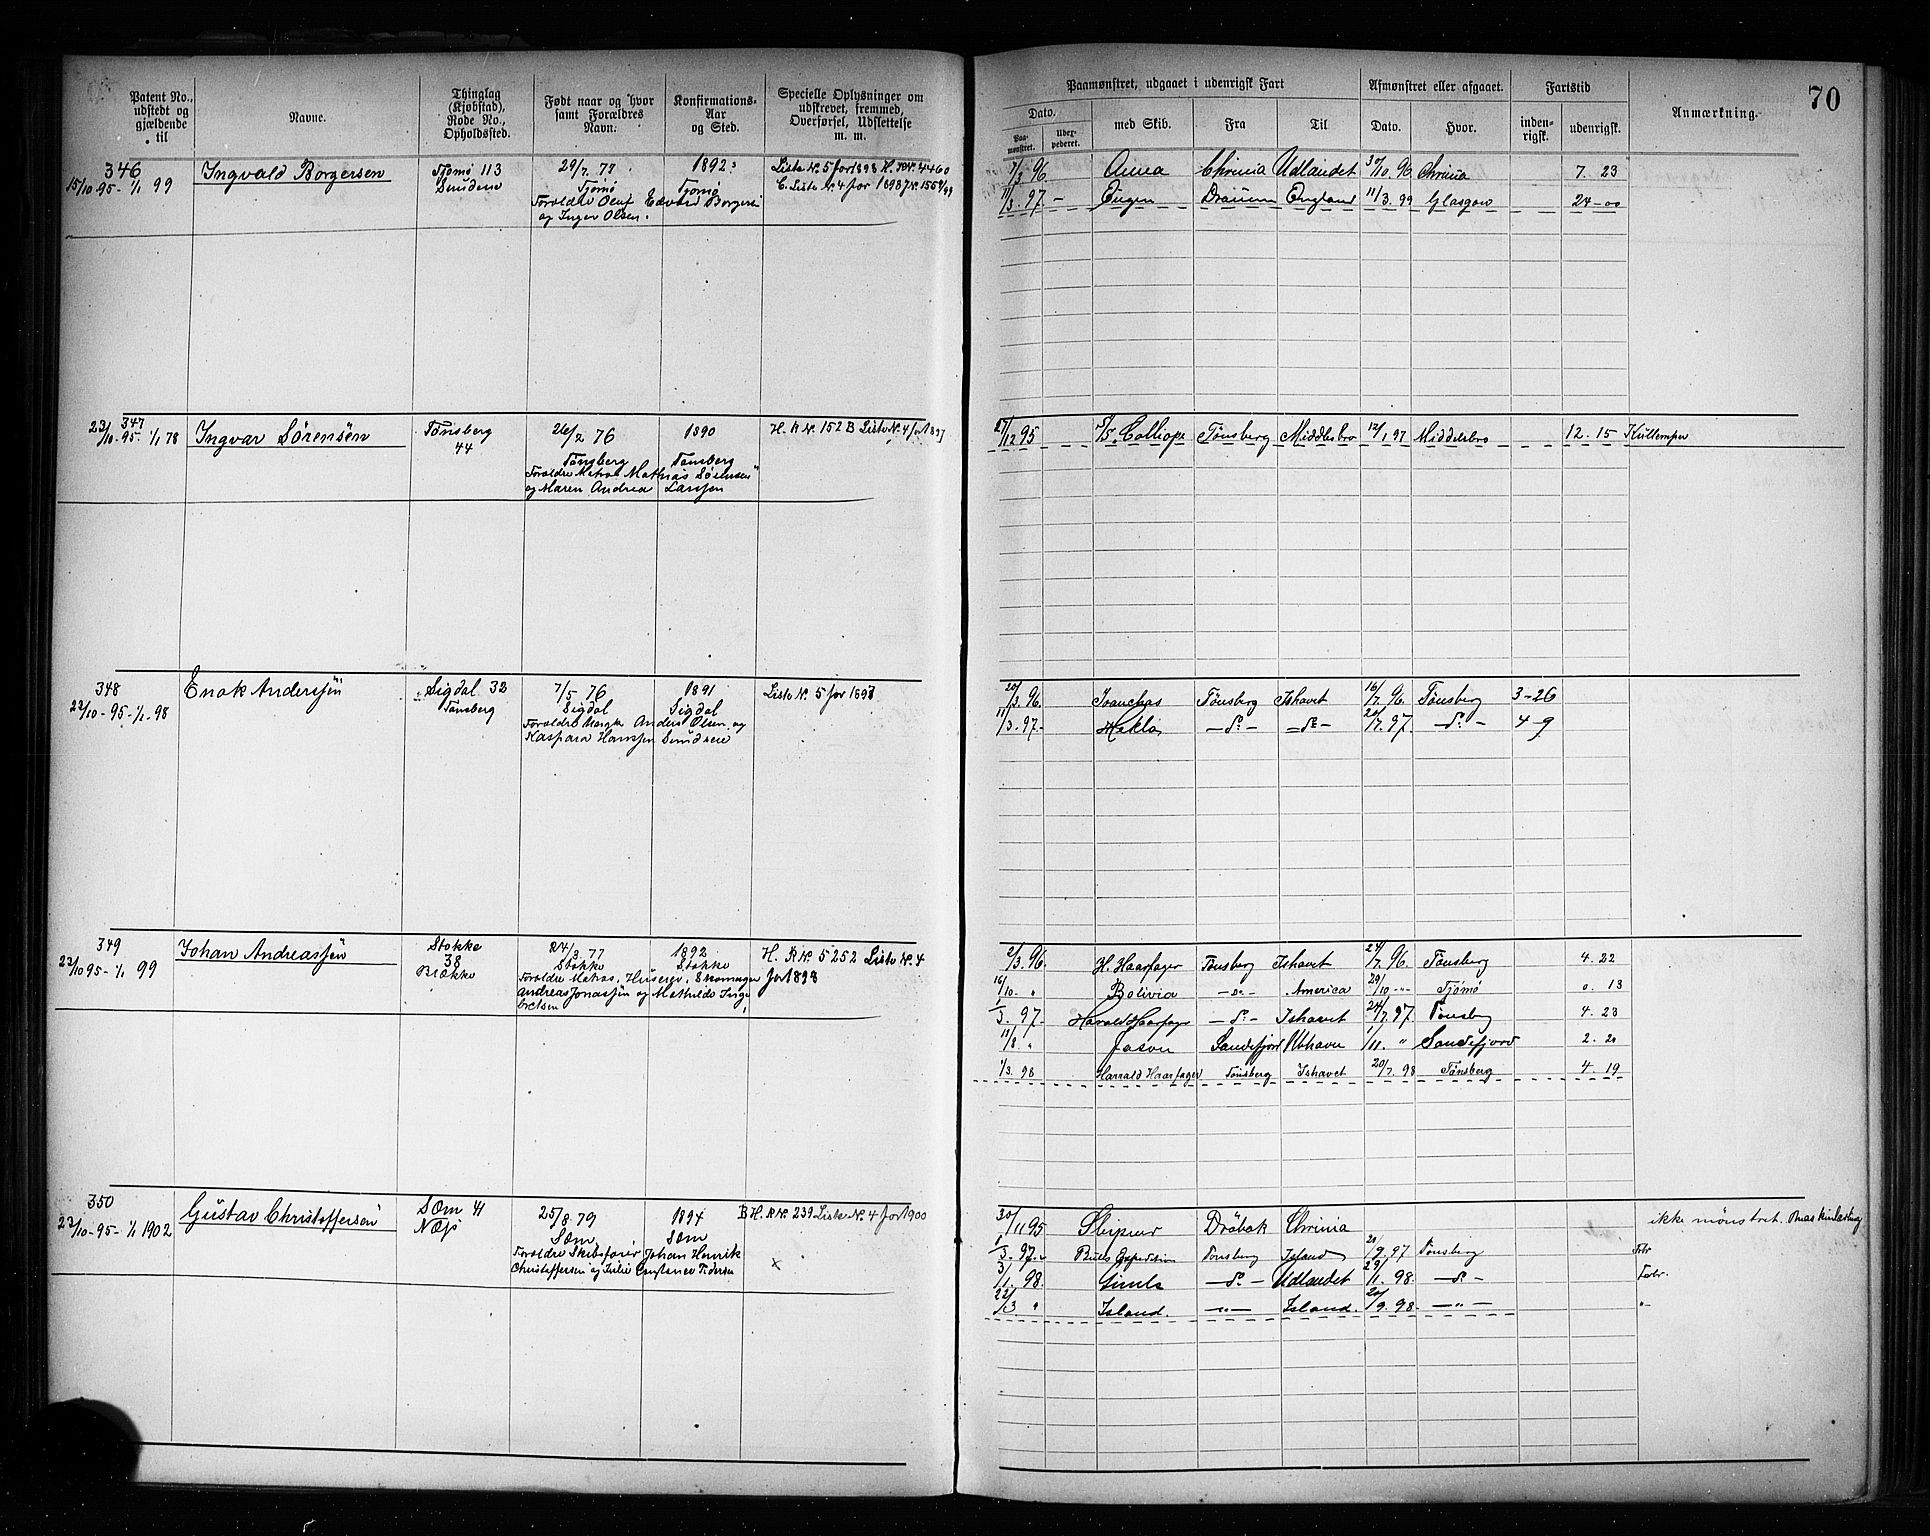 Patent No.,
udstedt og
gjældende
til
Navne.
Thinglag
(Kjøbstad),
Rode No.,
Opholdssted.
Født naar og hvor
samt Forældres
Navn.
Konfirmations-
Aar
og Sted.
Specielle Oplysninger om
udskrevet, fremmed,
Overførsel, Udslettelse
m. m.
346
15/10-95-1/1 99
Ingvald Borgersen
Tjømø 113
29/7.77
Tjømø
Forældre Oluf Edvard Borgersen
og Inger Olsen.
1892
Tjømø
Liste No. 5 for 1898 H. R No. 4460
C. Liste No. 4 for 1898
347
23/10-95. 1/1 78
Ingvar Sørensen
Tønsberg
44
26/2 76
Tønsberg
Forældre Matros Mathias Sørensen
og Maren Andrea Larssen
1890
Tønsberg
H. R No. 152 B Liste No. 4 for 1897
348
22/10-95-1/1-98
Enok Anderssen
Sigdal 32
Tønsberg
7/5 76
Sigdal
Anders Olsen og
Kaspara Hanssen
1891
Sigdal
Liste No. 5 for 1898
349
22/10 95-1/1 99
Johan Andreassen
Stokke
38
24/3.77
Stokke
Andreas Jonassen og Mathilde Inge
bretsen
1892
Stokke
H. R No. 5252 Liste No. 4
for 1898
350
22/10-95-1/1 1902
Gustav Christoffersen
Sæm 41
Næs
25/8 79
Sæm
Forældre Skibsfører Johan Henrik
Christoffersen og Julie Constance Pedersen
1894
Sæm
B H. R No. 239 Liste No. 4 for 1900
x
70
Paamønstret, udgaaet i udenrigsk Fart
Afmønstret eller afgaaet.
Fartstid
Anmærkning.
Dato.
Paa-
mønstret.
med Skib.
Fra
Til
Dato.
Hvor.
inden-
rigsk.
udenrigsk.
7/3 96. Anna Chrinia Udlandet 30/10.96 Chrinia 7. 23
11/3.97. - Eugen England 11/3.99 Glasgow 24-00
27/12 95 S/S. Calliope Tønsberg Middlesbro 12/1 97 Middelsbro 12. 15 Kullemper
20/3.96. Tønsberg Ishavet 16/7.96. Tønsberg 3-26
11/3-97- Hekla -do- -do- 20/7.97. -do- 4-9
2/3.96. H. Haarfager Tønsberg Ishavet 24/7.96. Tønsberg 4. 22
16/10. " Bolivia -do- America 29/10 -"- Tjømø 0. 13
1/3. 97- Harald Haarfager -do- Ishavet 24/7.97 Tønsberg 4. 23
11/8. " Jason Sandefjord 1/11. " Sandefjord 2. 20
1/3. 98 Harrald Haarfager Tønsberg Ishavet 20/7. 98 Tønsberg 4. 19
30/11 95 Sleipner Drøbak Chrinia ikke mønstret.
1/3-97.- Bulls Expedition Tønsberg Island 21/9.97 Tønsberg
3/1. 98. Simla -do- Udlandet 29/11. 98. -do-
22/3 " Island. -"- Island. 20/9.98. -"- "